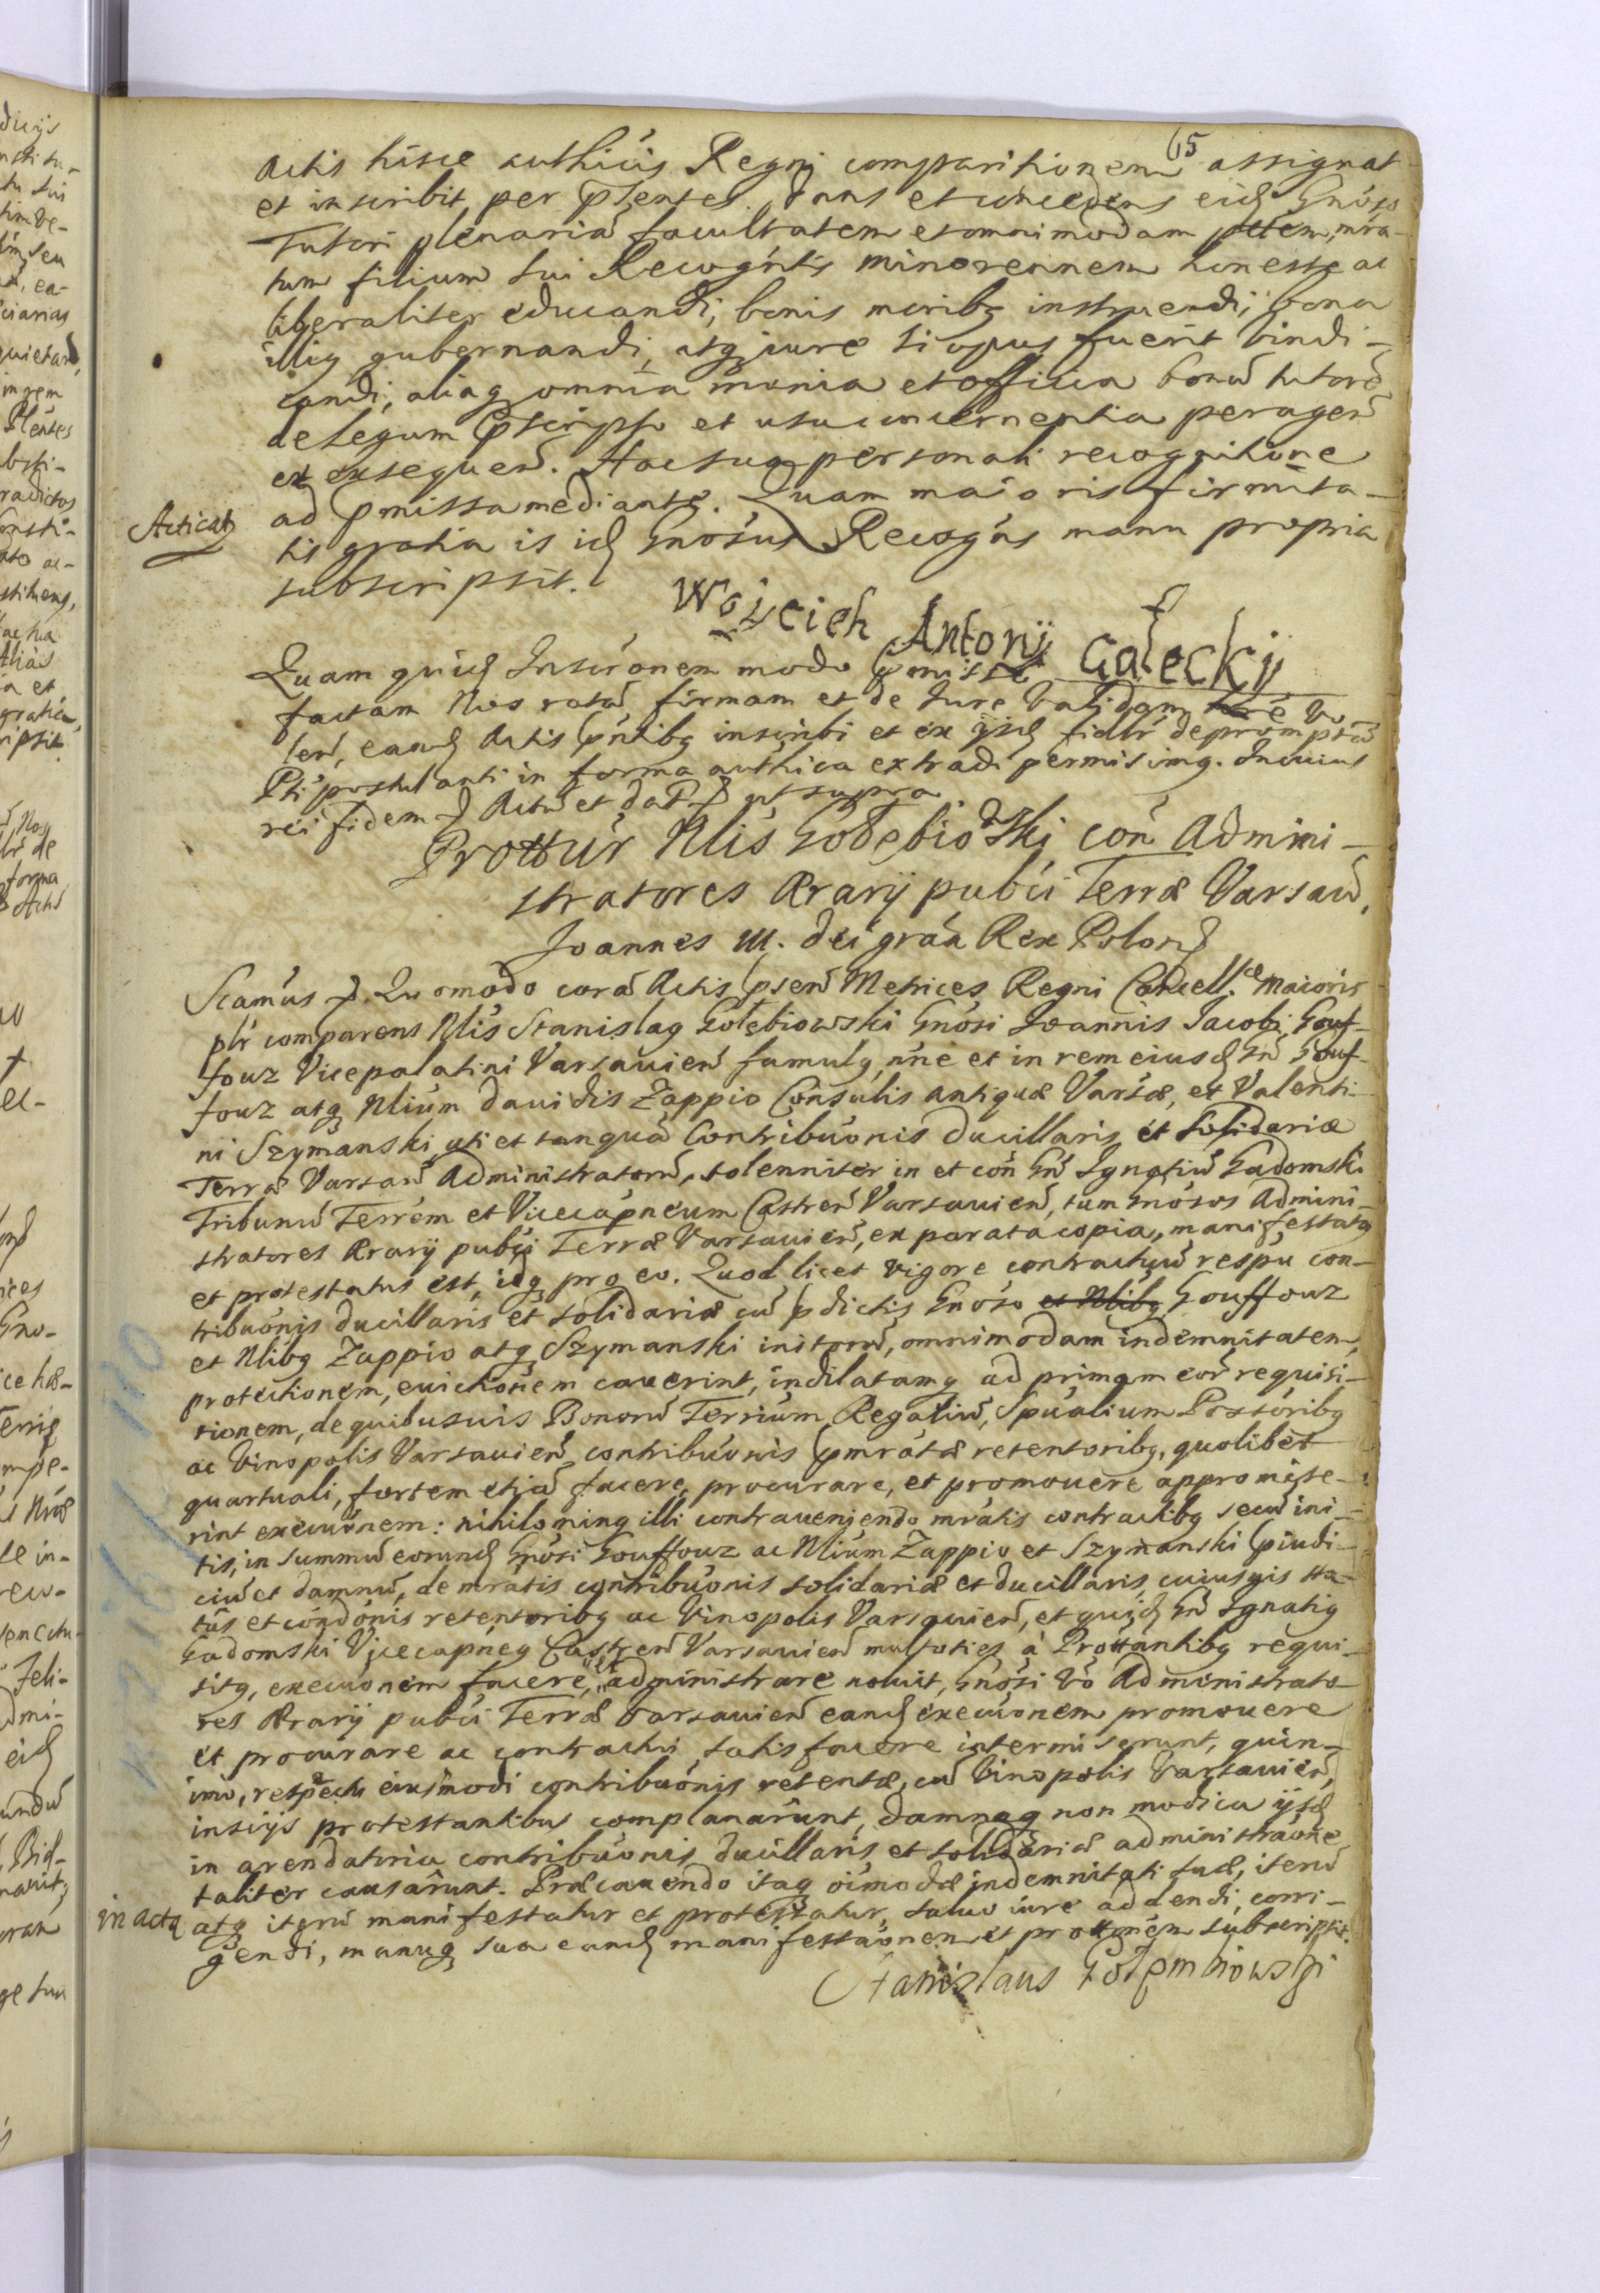 65
Actis hisce authcis Regni comparitionem assignat
et inscribit, per pñtes. Dans et concedens eid Gnoso
Tutori plenariã facultatem et omnimodam ptem, mra-
tum filium sui Recogntis minorennem honeste ac
liberaliter educandi, bonis moribq instruendi, bona
illiq gubernandi, atq iure si opus fuerit vindi-
candi, aliaq omnia munia et officia bonũ tutorẽ
de legum pscripto et usu concernentia peragen̄
et exequen̄. Hac sua personali recognitione
ad pmissa mediante. Quam maioris firmita-
Acticat
tis gratia is id Gnosus Recogns manu propria
subscripsit.
Woyciech Antonÿ Gałeckÿ
Quam quid Inscronem modo pmisso
factam Nos ratã firmam et de Iure validam vo-
len̄, eand Actis pntibq inscribi et ex ijsd fidelr depromptã
Pti postulanti in forma authica extradi permisimq. In cuius
rei fidem Actũ et dat ut supra
Prottur Nlis Gołębiowski con Admini-
stratores Ærarÿ pubci Terræ Varsav.
Joannes III. Dei grãa Rex Polon
Scamus Quomodo corã Actis psen̄ Metrices Regni Cancell. Maioris
plr comparens Nlis Stanislaq Gołębiowski Gnosi Joannis Jacobi Gouf-
fouz Vicepalatini Varsauien̄ famulq, nñe et in rem eiusd Gn̄ Gouf-
fouz atq Nlium Dauidis Zappio Consulis Antiquæ Varsæ, et Valenti-
ni Szymanski, uti et tanquã Contribuonis ducillaris et solidariæ
Terræ Varsau Administratorũ, solenniter in et con Gn̄ Ignatiũ Gadomski
Tribunũ Terrem et Vicecapneum Castren̄ Varsauien̄, tum Gnosos Admini-
stratores Ærarÿ pubci Terræ Varsauien̄, ex parata copia, manifestatq
et protestatus est, idq pro eo. Quod licet vigore contractuũ respu con-
tribuonis ducillaris et solidariæ cũ pdictis Gnoso et Nlibq Gouffouz
et Nlibq Zappio atq Szymanski initorũ, omnimodam indemnitatem,
protectionem, euictionem cauerint, indilatamq ad primam eor requisi-
tionem, de quibusuis Bonorũ Terrium Regaliũ, Spualium Possoribq
ac Vinopolis Varsauien̄ contribuonis pmratæ retentoribq, quolibet
quartuali, fortem etiã facere, procurare, et promouere appromise-
rint execuonem: nihilominq illi contraueniendo mratis contractibq secũ ini-
tis, in summũ eorund Gnosi Gouffouz ac Nlium Zappio et Szymanski piudi-
ciũ et damnũ, de mratis contribuonis solidariæ et ducillaris cuiusuis sta-
tus et condonis retentoribq ac Vinopolis Varsauien̄, et quid Gn̄ Ignatiq
Gadomski Vicecapneq Castren̄ Varsauien̄ multoties à Prottantibq requi-
sitq, execuonem facere, et administrare noluit, Gnosi vo Administrato-
res Ærarÿ pubci Terræ Varsauien̄ eand execuonem promouere
et procurare ac contractui satisfacere intermiserunt, quin-
imo, respectu eiusmodi contribuonis retentæ, cũ Vinopolis Varsauien̄,
inscijs protestantibus complanarunt, damnaq non modica ijsd
in arendatoria contribuonis ducillaris et solidariæ administraone
taliter causarunt. Præcauendo itaq oimodæ indemnitati suæ, iterũ
in acta
atq iterũ manifestatur et protestatur, saluo iure addendi, corri-
gendi, manuq sua eand manifestaonem et prottonem subscripsit.
Stanislaus Gołembiowski